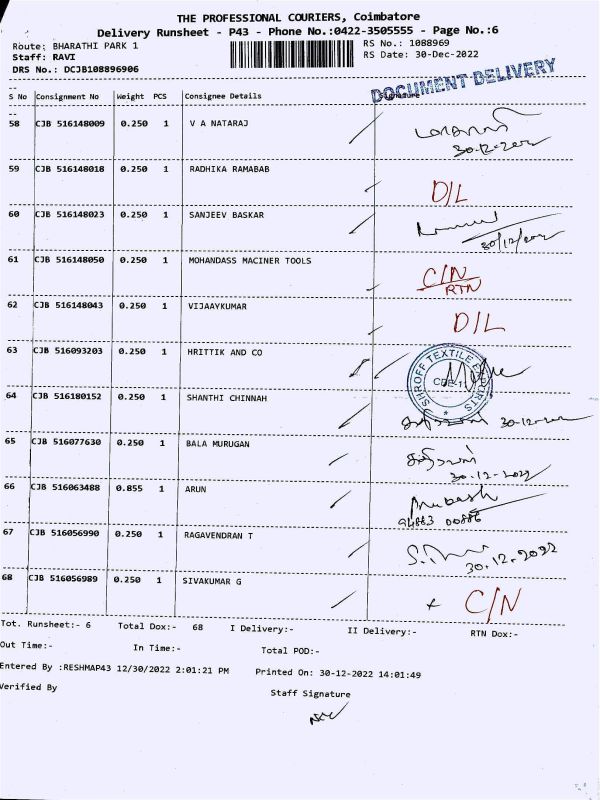 THE PROFESSIONAL COURIERS, Coimbatore
Delivery Runsheet - P43 - Phone No.:0422-3505555 - Page No.:6
Route: BHARATHI PARK 1 RS No.: 1088969
Staff: RAVI RS Date: 30-Dec-2022
DRS No.: DCJB108896906
DOCUMENT DELIVERY
S No Consignment No Weight PCS Consignee Details Signature
58 CJB 516148009 0.250 1 V A NATARAJ
30-12-2022
59 CJB 516148018 0.250 1 RADHIKA RAMABAB D/L
60 CJB 516148023 0.250 1 SANJEEV BASKAR
30/12/2022
61 CJB 516148050 0.250 1 MOHANDASS MACINER TOOLS C/N
RTN
62 CJB 516148043 0.250 1 VIJAAYKUMAR D/L
63 CJB 516093203 0.250 1 HRITTIK AND CO SHROFF TEXTILE EXPORTS
64 CJB 516180152 0.250 1 SHANTHI CHINNAH
30-12-2022
65 CJB 516077630 0.250 1 BALA MURUGAN
30-12-2022
66 CJB 516063488 0.855 1 ARUN
94883 00886
67 CJB 516056990 0.250 1 RAGAVENDRAN T
30.12.2022
68 CJB 516056989 0.250 1 SIVAKUMAR G C/N
Tot. Runsheet:- 6 Total Dox:- 68 I Delivery:- II Delivery:- RTN Dox:-
Out Time:- In Time:- Total POD:-
Entered By :RESHMAP43 12/30/2022 2:01:21 PM Printed On: 30-12-2022 14:01:49
Verified By Staff Signature